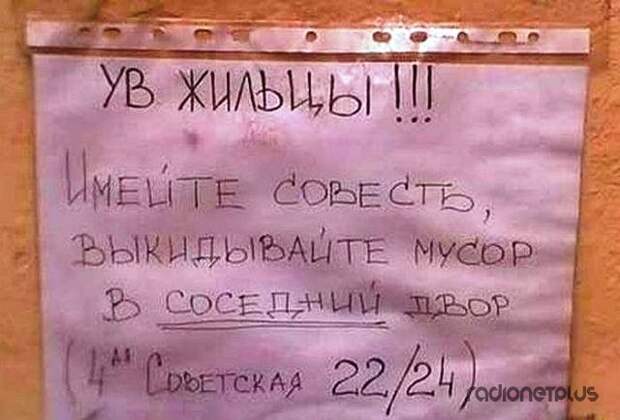 УВ ЖИЛЬЦЫ!!!
ИМЕЙТЕ СОВЕСТЬ,
ВЫКИДЫВАЙТЕ МУСОР
В СОСЕДНИЙ ДВОР
(4ая СОВЕТСКАЯ 22/24)
radionetplus